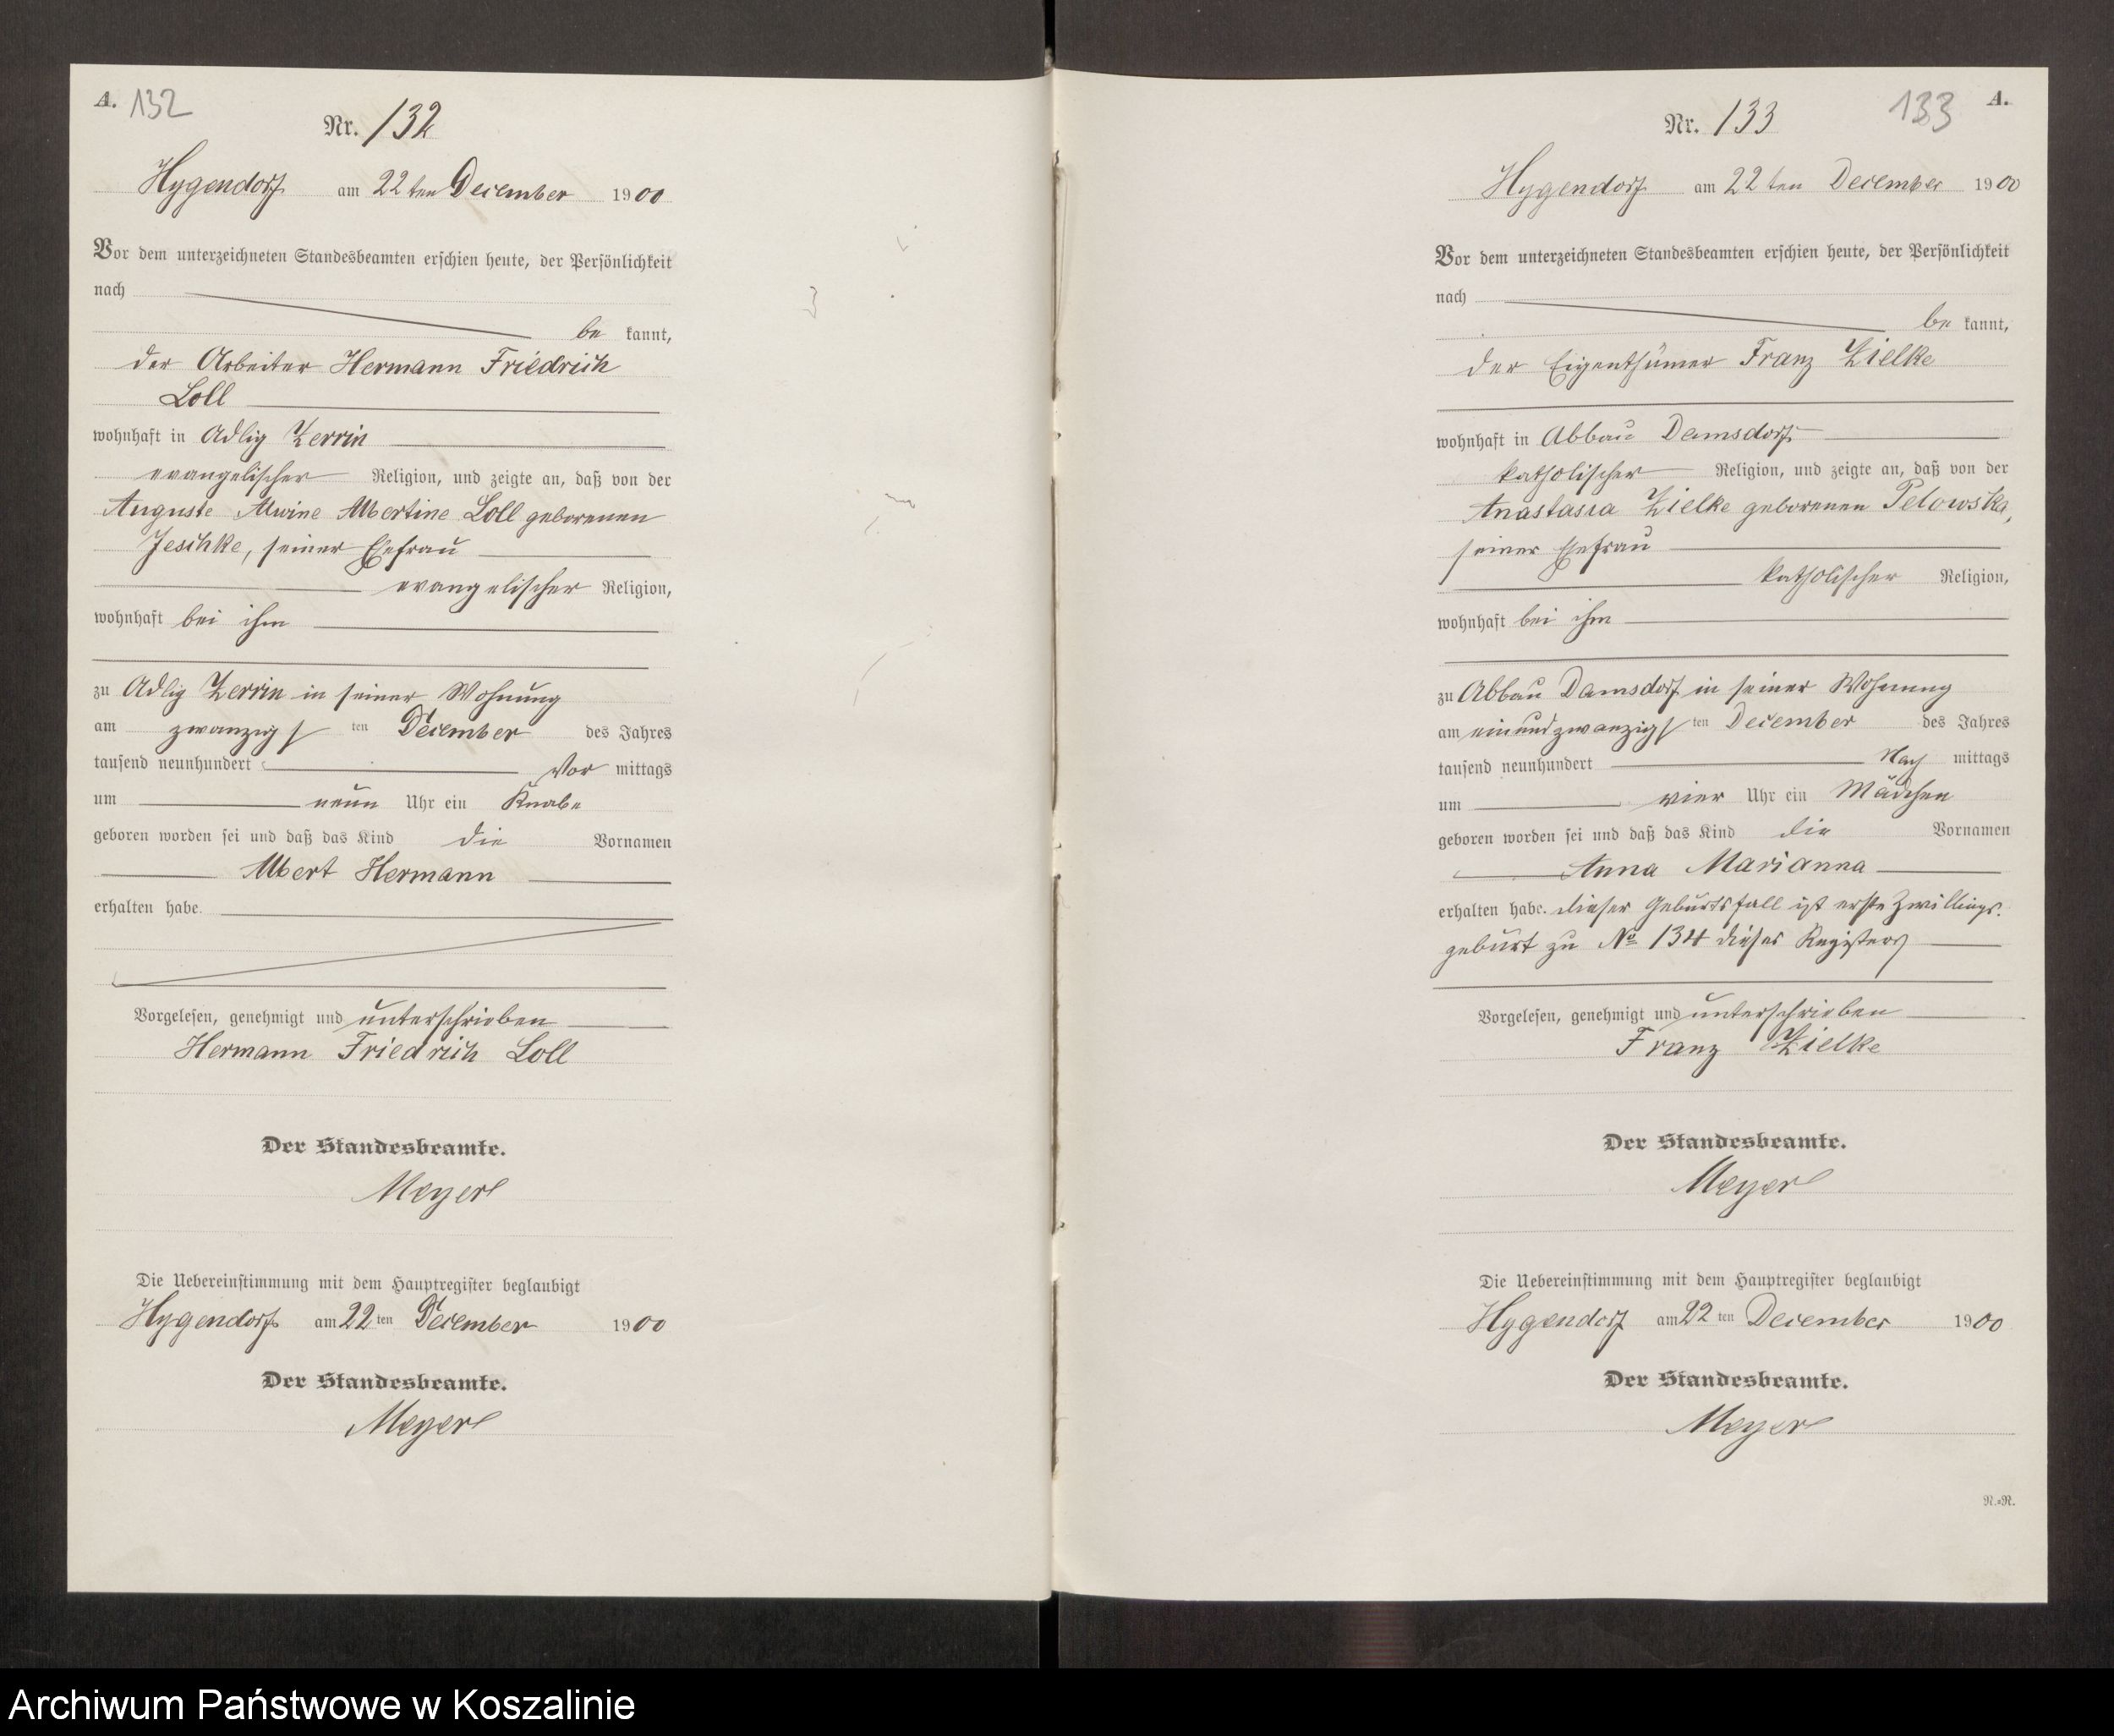 A. 132
Nr. 132
Hygendorf am 22ten December 1900
Vor dem unterzeichneten Standesbeamten erschien heute, der Persönlichkeit
nach
be kannt,
der Arbeiter Hermann Friedrich
Loll
wohnhaft in Adlig Zerrin
evangelischer Religion, und zeigte an, daß von der
Auguste Alwine Albertine Loll geborenen
Jeschke, seiner Ehefrau
evangelischer Religion,
wohnhaft bei ihm
zu Adlig Zerrin in seiner Wohnung
am zwanzigsten December des Jahres
tausend neunhundert Vor mittags
um neun Uhr ein Knabe
geboren worden sei und daß das Kind die Vornamen
Albert Hermann
erhalten habe.
Vorgelesen, genehmigt und unterschrieben
Hermann Friedrich Loll
Der Standesbeamte.
Meyer
Die Uebereinstimmung mit dem Hauptregister beglaubigt
Hygendorf am 22 ten December 1900
Der Standesbeamte.
Meyer
133 A.
Nr. 133
Hygendorf am 22ten December 1900
Vor dem unterzeichneten Standesbeamten erschien heute, der Persönlichkeit
nach
be kannt,
der Eigenthümer Franz Zielke
wohnhaft in Abbau Damsdorf
katholischer Religion, und zeigte an, daß von der
Anastasia Zielke geborenen Pelowska,
seiner Ehefrau
katholischer Religion,
wohnhaft bei ihm
zu Abbau Damsdorf in seiner Wohnung
am einundzwanzigsten December des Jahres
tausend neunhundert Nach mittags
um vier Uhr ein Mädchen
geboren worden sei und daß das Kind die Vornamen
Anna Marianna
erhalten habe. dieser Geburtsfall ist erste Zwillings-
geburt zu No 134 dieses Registers
Vorgelesen, genehmigt und unterschrieben
Franz Zielke
Der Standesbeamte.
Meyer
Die Uebereinstimmung mit dem Hauptregister beglaubigt
Hygendorf am 22 ten December 1900
Der Standesbeamte.
Meyer
N.=R.
Archiwum Państwowe w Koszalinie